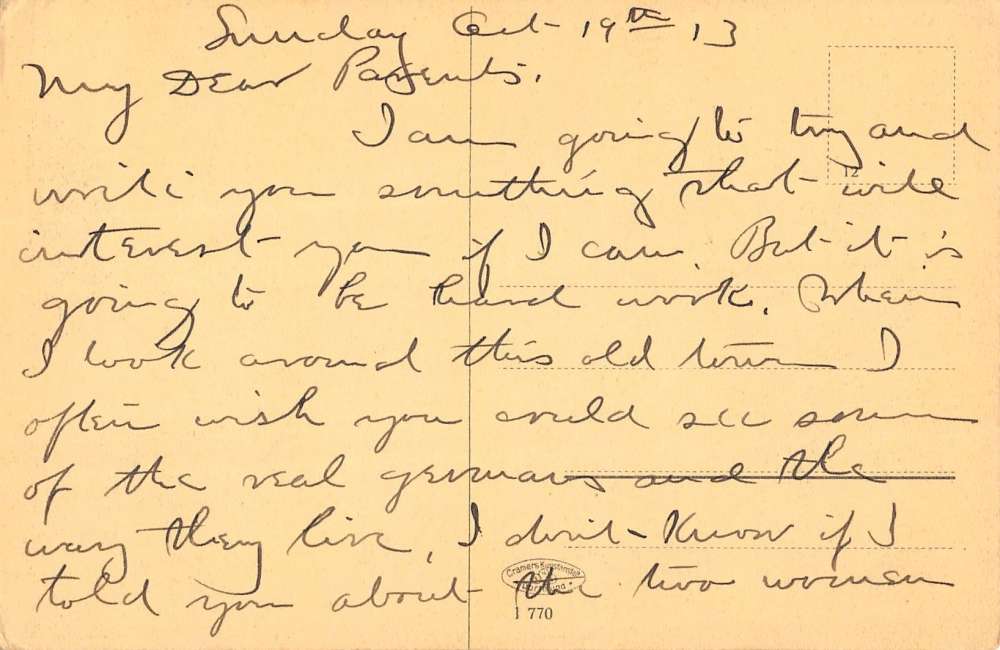 Sunday Oct 19th 13
My Dear Parents.
I am going to try and
write you something that will
interest you if I can. But it is
going to be hard work. When
I look around this old town I
often wish you could see some
of the real germans and the
way they live, I don't know if I
told you about the two women
12
Cramers Kunstanstalt
Dortmund
1 770